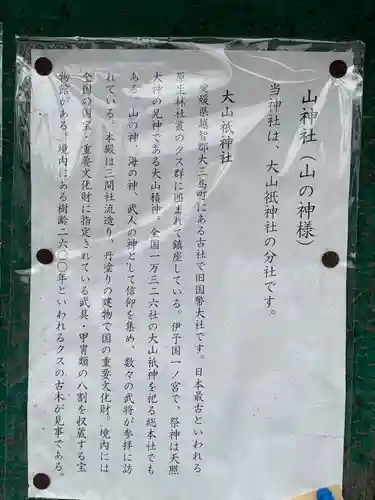 山神社（山の神様）
当神社は、大山祇神社の分社です。
大山祇神社
愛媛県越智郡大三島町にある古社で旧国幣大社です。日本最古といわれる
原生林社叢のクス群に囲まれて鎮座している。伊予国一ノ宮で、祭神は天照
大神の兄神である大山積神。全国一万三二六社の大山祇神を祀る総本社でも
ある。山の神、海の神、武人の神として信仰を集め、数々の武将が参拝に訪
れている。本殿は三間社流造り、丹塗りの建物で国の重要文化財。境内には
全国の国宝・重要文化財に指定されている武具・甲冑類の八割を収蔵する宝
物館がある。境内にある樹齢二六〇〇年といわれるクスの古木が見事である。